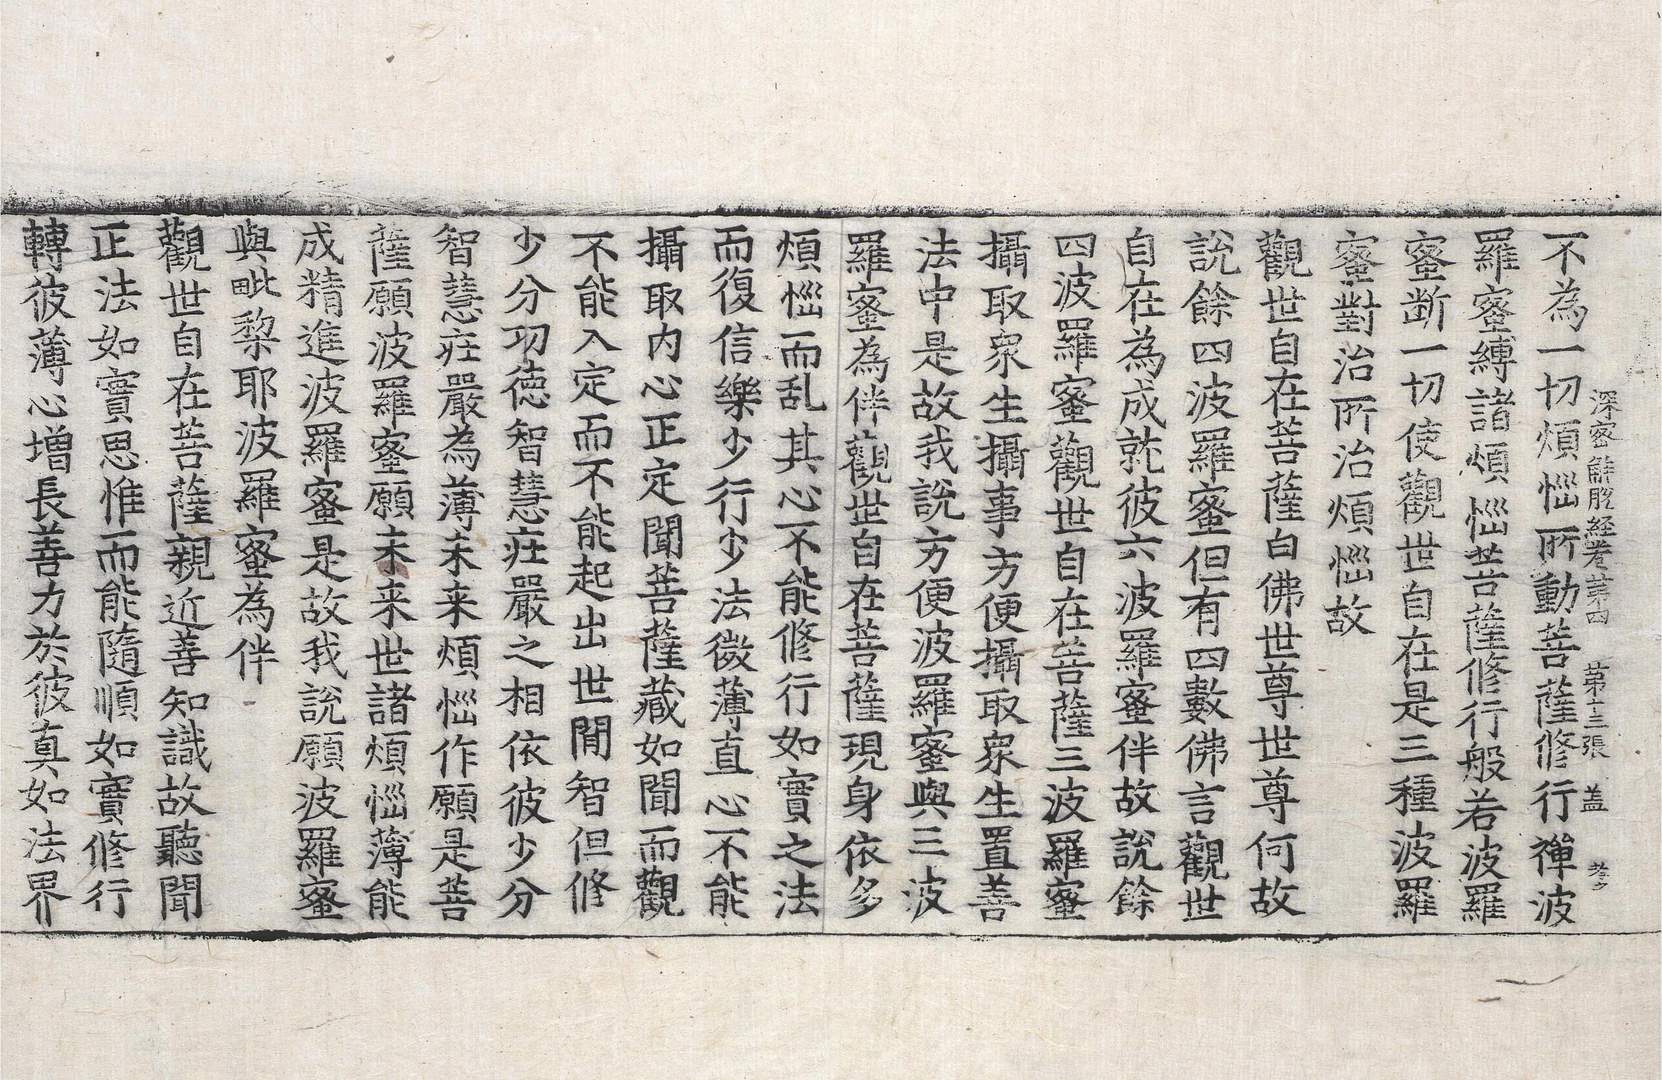 深密解脫經卷第四 第十三張 盖
不為一切煩惱所動菩薩修行禪波
羅蜜縛諸煩惱菩薩修行般若波羅
蜜断一切使觀世自在是三種波羅
蜜對治所治煩惱故
觀世自在菩薩白佛世尊世尊何故
說餘四波羅蜜但有四數佛言觀世
自在為成就彼六波羅蜜伴故說餘
四波羅蜜觀世自在菩薩三波羅蜜
攝取衆生攝事方便攝取衆生置善
法中是故我說方便波羅蜜與三波
羅蜜為伴觀世自在菩薩現身依多
煩惱而乱其心不能修行如實之法
而復信樂少行少法微薄直心不能
攝取内心正定聞菩薩藏如聞而觀
不能入定而不能起出世閒智但修
少分功德智慧莊嚴之相依彼少分
智慧莊嚴為薄未来煩惱作願是菩
薩願波羅蜜願未来世諸煩惱薄能
成精進波羅蜜是故我說願波羅蜜
與毗棃耶波羅蜜為伴
觀世自在菩薩親近善知識故聽聞
正法如實思惟而能隨順如實修行
轉彼薄心增長善力於彼真如法界